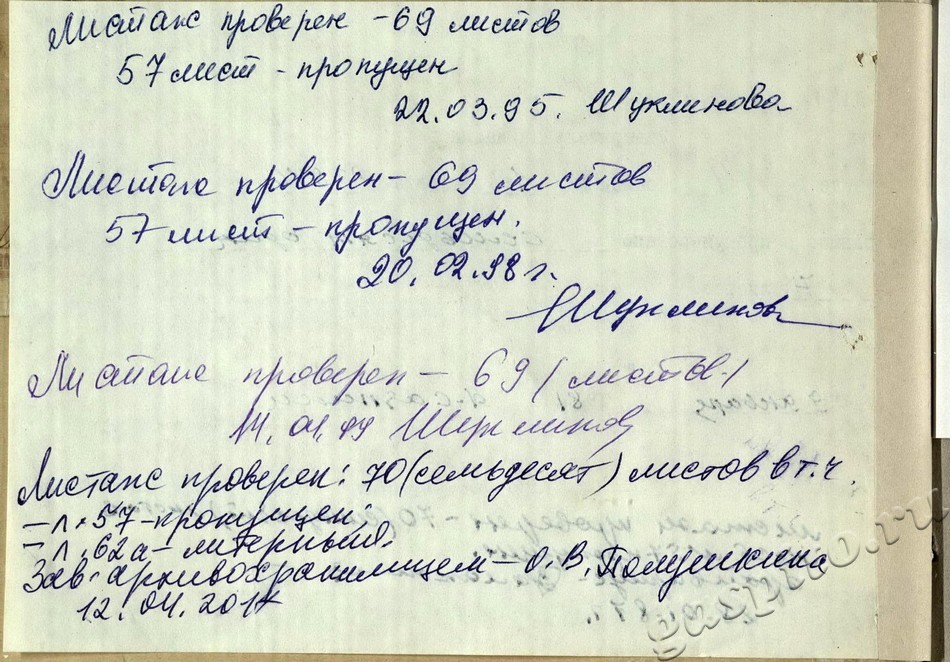 Листаж проверен - 69 листов
57 лист - пропущен
22.03.95. Шуклинова
Листаж проверен - 69 листов
57 лист - пропущен.
20.02.98 г.
Шуклинова
Листаж проверен - 69 (листов)
14.01.99 Шуклинова
Листаж проверен: 70 (семьдесят) листов в т.ч.
- л. 57 - пропущен;
- л. 62а - литерный.
Зав. архивохранилищем - О.В. Полушкина